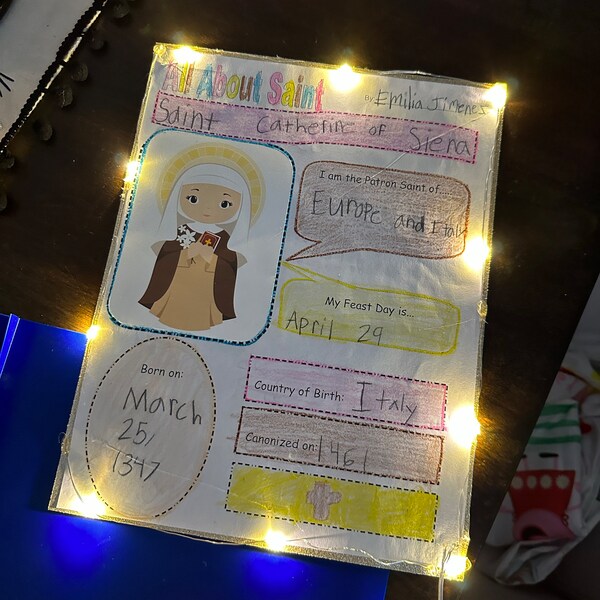 All About Saint
By: Emilia Jimenez
Saint Catherine of Siena
I am the Patron Saint of...
Europe and Italy
My Feast Day is...
April 29
Born on:
March
25,
1347
Country of Birth: Italy
Canonized on: 1461